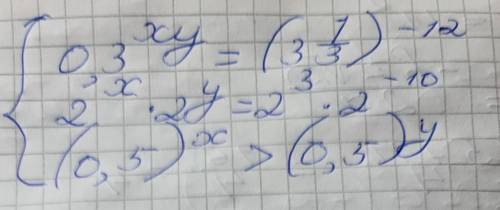 0,3^{xy} = (3 1/3)^{-12}
2^x · 2^y = 2^3 · 2^{-10}
(0,5)^x > (0,5)^y